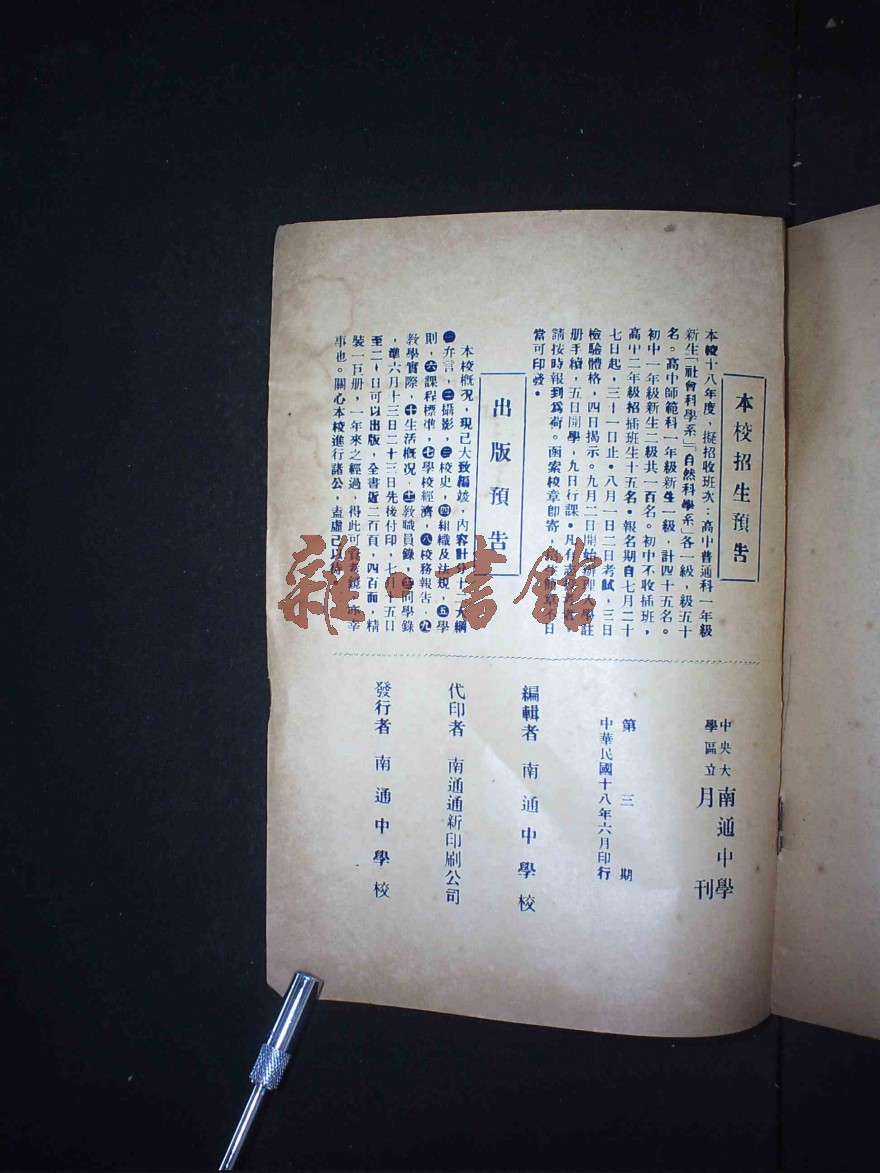 本校招生預告
本校十八年度，擬招收班次：高中普通科一年級
新生「社會科學系」「自然科學系」各一級，級五十
名。高中師範科一年級新生一級，計四十五名。
初中一年級新生二級共一百名。初中不收插班，
高中二年級招插班生十五名。報名期自七月二十
七日起，三十一日止。八月一日二日考試，三日
檢驗體格，四日揭示。九月二日開始辦理入學註
册手續，五日開學，九日行課。凡有志
請按時報到爲荷。函索校章卽寄，
當可印發。
出版預告
本校概況，現已大致編竣，內容計分十二大綱
㊀弁言，㊁攝影，㊂校史，㊃組織及法規，㊄學
則，㊅課程標準，㊆學校經濟，㊇校務報告，㊈
教學實際，㊉生活概況，教職員錄，同學錄
，準六月十三日二十三日先後付印，七月十五日
至二十日可以出版，全書近二百頁，四百面，精
裝一巨册，一年來之經過，得此可資考鏡，亦幸
事也。關心本校進行諸公，盍虛己以待。
中央大學區立南通中學月刊
第三期
中華民國十八年六月印行
編輯者 南通中學校
代印者 南通通新印刷公司
發行者 南通中學校
雜·書館